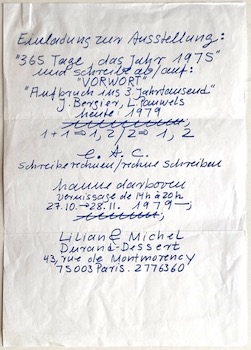 Einladung zur Ausstellung:
"365 Tage, das Jahr 1975"
und schreibe ab/auf:
"VORWORT"
"Aufbruch ins 3. Jahrtausend"
J. Bergier, L. Pauwels
heute: 1979
1+1 ⇒ 1, 2/2 ⇒ 1, 2
E. A. C.
schreibe rechnen/rechne schreiben
hanne darboven
vernissage de 14h à 20h
27.10. → 28.11. 1979 —,
Liliane Michel
Durand-Dessert
43, rue de Montmorency
75003 Paris. 2776360